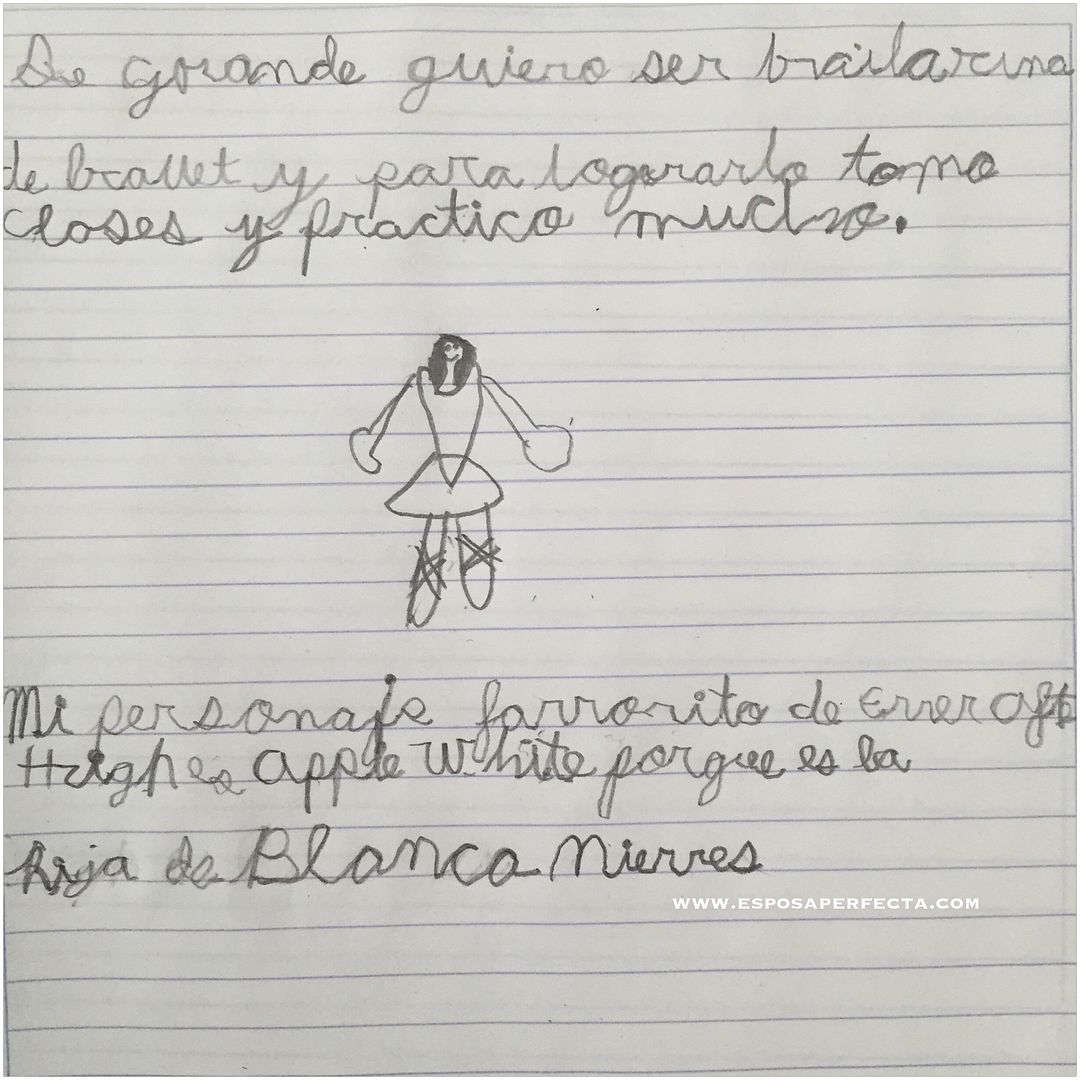 De grande quiero ser bailarina
de ballet y para lograrlo tomo
clases y practico mucho.
Mi personaje favorito de Ever After
High es Apple White porque es la
hija de Blanca Nieves
WWW.ESPOSAPERFECTA.COM